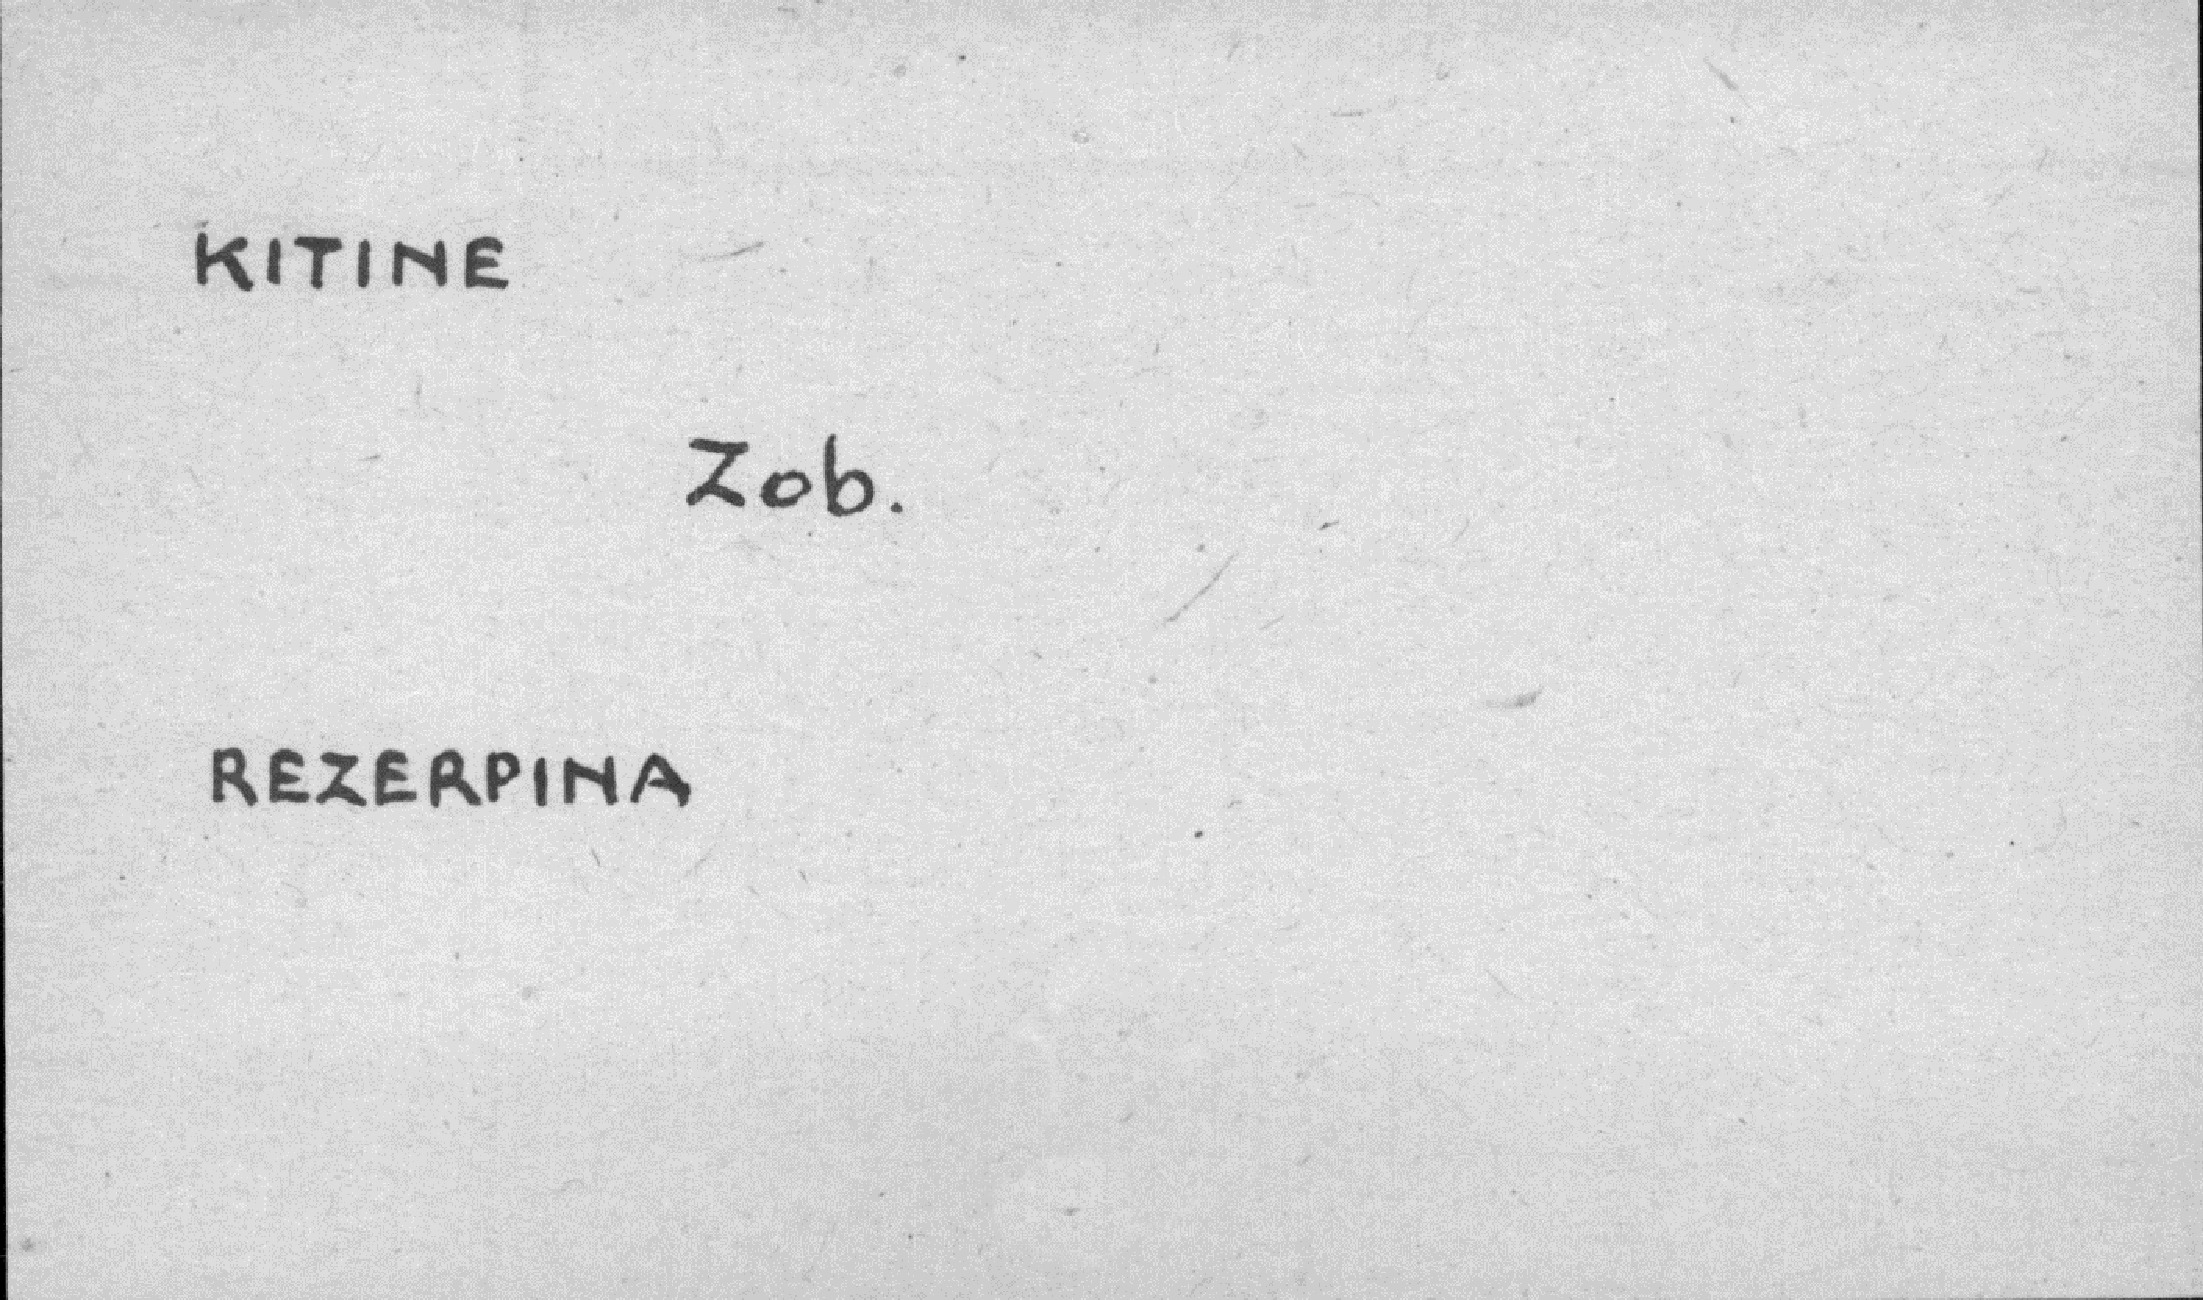 KITINE
Zob.
REZERPINA